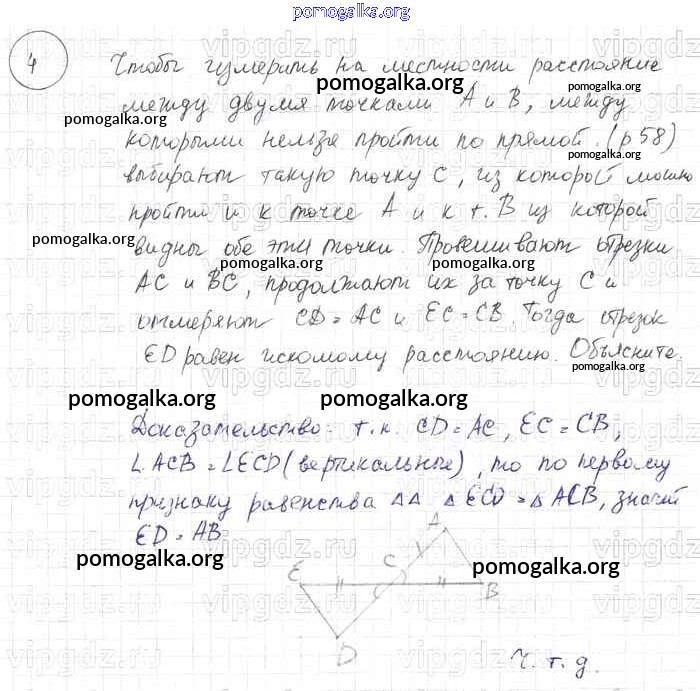 pomogalka.org
4
Чтобы измерить на местности расстояние
pomogalka.org
между двумя точками А и В, между
pomogalka.org
pomogalka.org
которыми нельзя пройти по прямой (р 58)
pomogalka.org
выбирают такую точку С, из которой можно
пройти и к точке А и к т. В из которой
pomogalka.org
видны обе эти точки. Провешивают отрезки
pomogalka.org pomogalka.org pomogalka.org
АС и ВС, продолжают их за точку С и
отмеряют CD = AC и EC = CB. Тогда отрезок
ED равен искомому расстоянию. Объясните.
pomogalka.org
pomogalka.org pomogalka.org
Доказательство- т.к. CD = AC, EC = CB,
∠ACB = ∠ECD (вертикальные), то по первому
признаку равенства △△ △ECD = △ACB, значит
ED = AB
pomogalka.org pomogalka.org
A
C
E
B
D
ч.т.д.
vipgdz.ru